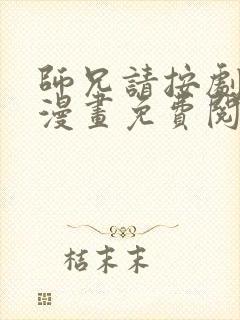 師兄請按劇
漫畫免費閱
桔末末